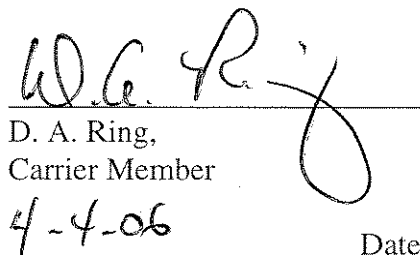 D. A. Ring
D. A. Ring,
Carrier Member
4-4-06
Date